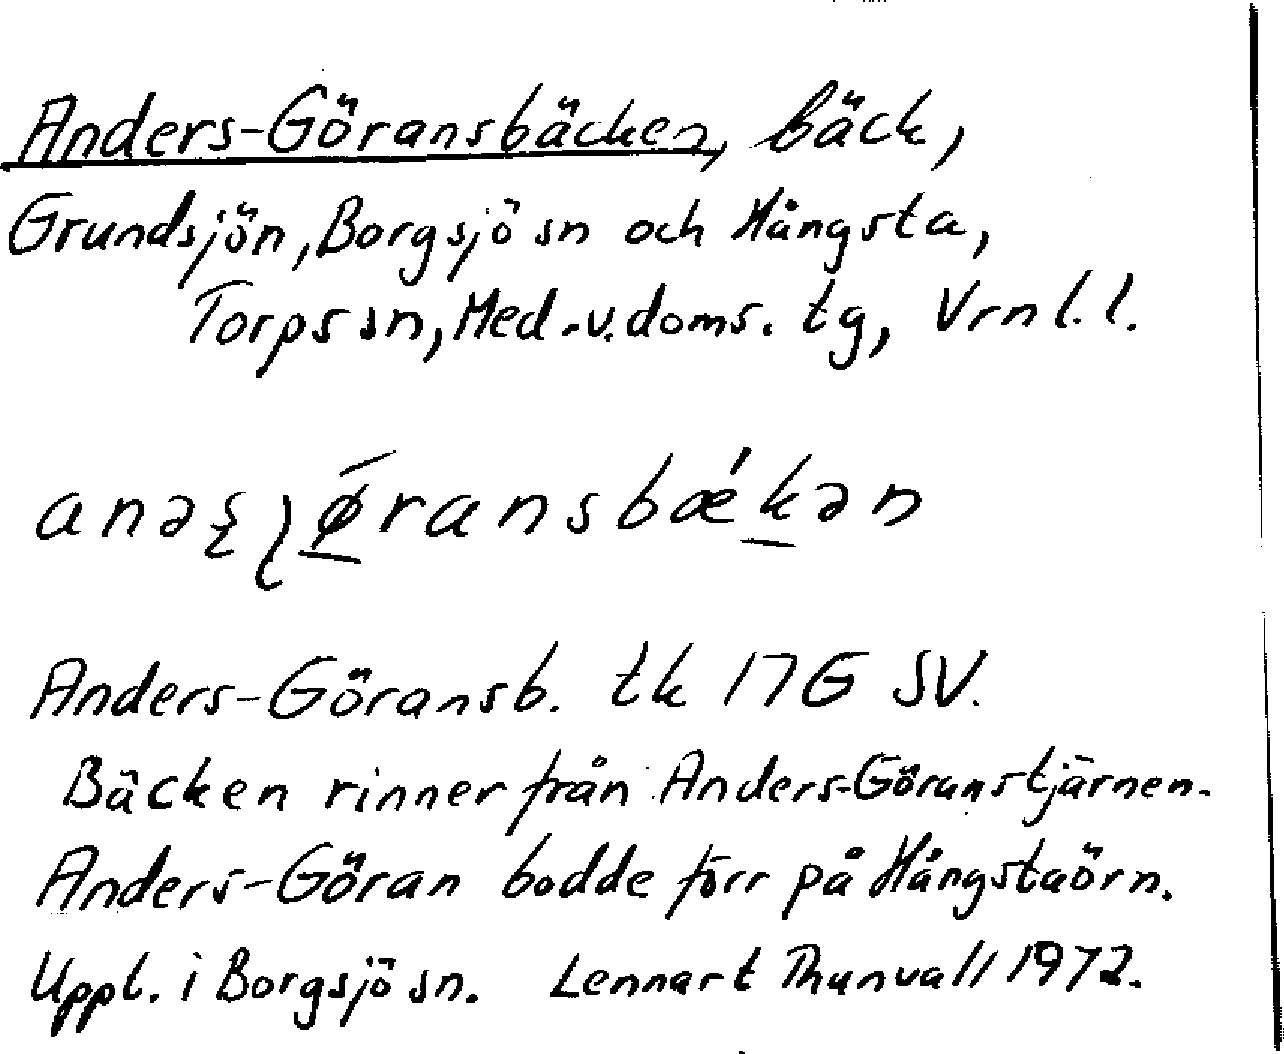 Anders-Göransbäcken, bäck,
Grundsjön, Borgsjö sn och Hångsta,
Torps sn, Med.v.doms. tg, Vrnl. l.
Anders-Göransb. tk 17G SV.
Bäcken rinner från Anders-Göranstjärnen.
Anders-Göran bodde förr på Hångstaörn.
Uppt. i Borgsjö sn. Lennart Thunvall 1972.